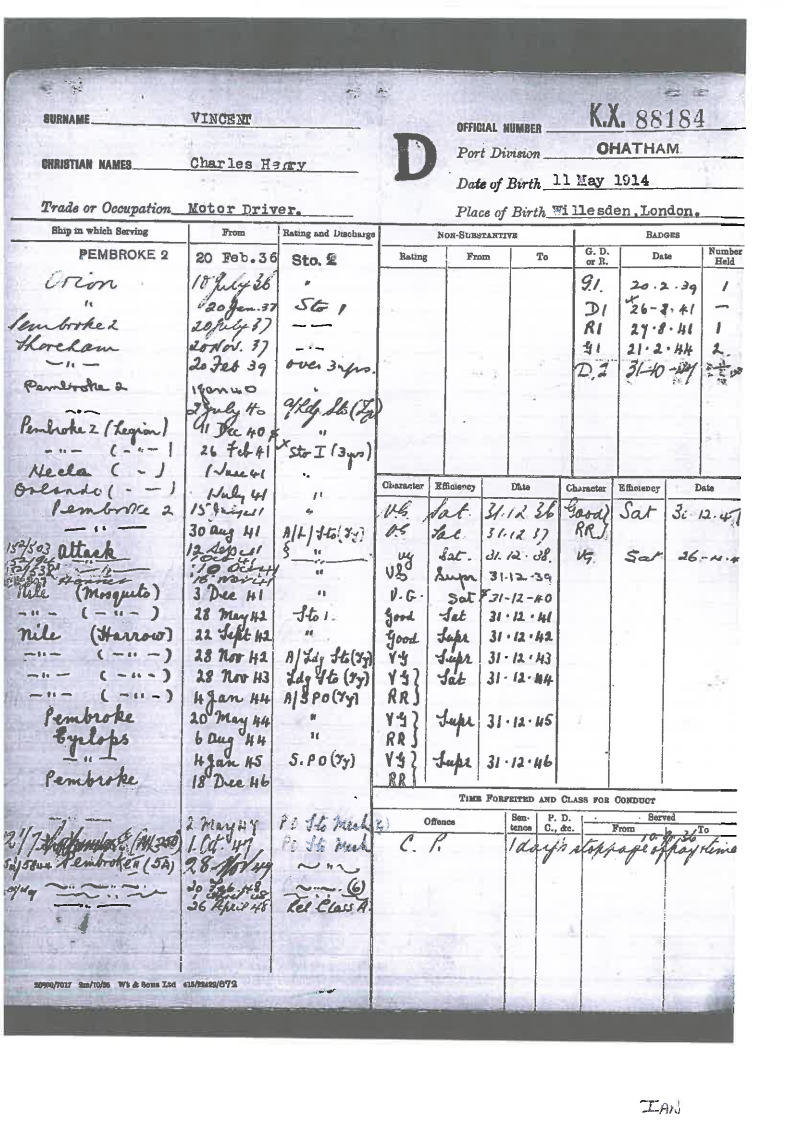 SURNAME VINCENT
CHRISTIAN NAMES Charles Henry
Trade or Occupation Motor Driver.
D
OFFICIAL NUMBER K.X. 88184
Port Division CHATHAM
Date of Birth 11 May 1914
Place of Birth Willesden, London.
Ship in which Serving From Rating and Discharge
PEMBROKE 2 20 Feb. 36 Sto. 2
Orion 10 July 36 "
" 20 Jan. 37 Sto 1
Pembroke 2 20 July 37 — —
Shoreham 20 Nov. 37 — " —
— " — 20 Feb 39 over 3 yrs.
Pembroke 2 1 Jan 40 "
— " — 2 July 40 A/Ldg Sto (Ty)
Pembroke 2 (Legion) 11 Dec 40 "
— " — ( — " — ) 26 Feb 41 Sto I (3 yrs)
Hecla ( — ) 1 June 41 "
Orlando ( — — ) 1 July 41 "
Pembroke 2 15 "
— " — 30 Aug 41 A/L/Sto (Ty)
Attack 12 Sept 41
— " — 10 Oct 41 "
16 Nov 41
Nile (Mosquito) 3 Dec 41 "
— " — ( — " — ) 28 May 42 Sto 1.
Nile (Harrow) 22 Sept 42 "
— " — ( — " — ) 28 Nov 42 A/Ldg Sto (Ty)
— " — ( — " — ) 28 Nov 43 Ldg Sto (Ty)
— " — ( — " — ) 4 Jan 44 A/SPO (Ty)
Pembroke 20 May 44 "
Cyclops 6 Aug 44 "
— " — 4 Jan 45 S.PO (Ty)
Pembroke 18 Dec 46
— " — 2 May 47 PO Sto Mech
1 Oct 47 PO Sto Mech
Pembroke II (5A) 28 Nov 47 — " —
20 Feb 48 — " — (6)
26 April 48 Rel Class A.
20500/7017 2m/10/35 Wt & Sons Ltd 415/22422/672
NON-SUBSTANTIVE
Rating From To
BADGES
G. D. or R. Date Number Held
G1. 20.2.39 1
D1 26-8-41 —
R1 27.8.41 1
G1 21.2.44 2
D.2 31-10
Character Efficiency Date Character Efficiency Date
VG Sat. 31.12.36 Good RR} Sat 31.12.47
VG Sat. 31.12.37
VG Sat. 31.12.38. VG Sat 26-4-4
VG Supr 31-12-39
V.G. Sat 31-12-40
Good Sat 31.12.41
Good Supr 31.12.42
VG Supr 31.12.43
VG RR} Sat 31.12.44
VG RR} Supr 31.12.45
VG RR} Supr 31.12.46
TIME FORFEITED AND CLASS FOR CONDUCT
Offence Sentence P. D. C., &c. Served From To
C. P. 1 day's stoppage of pay time
IAN